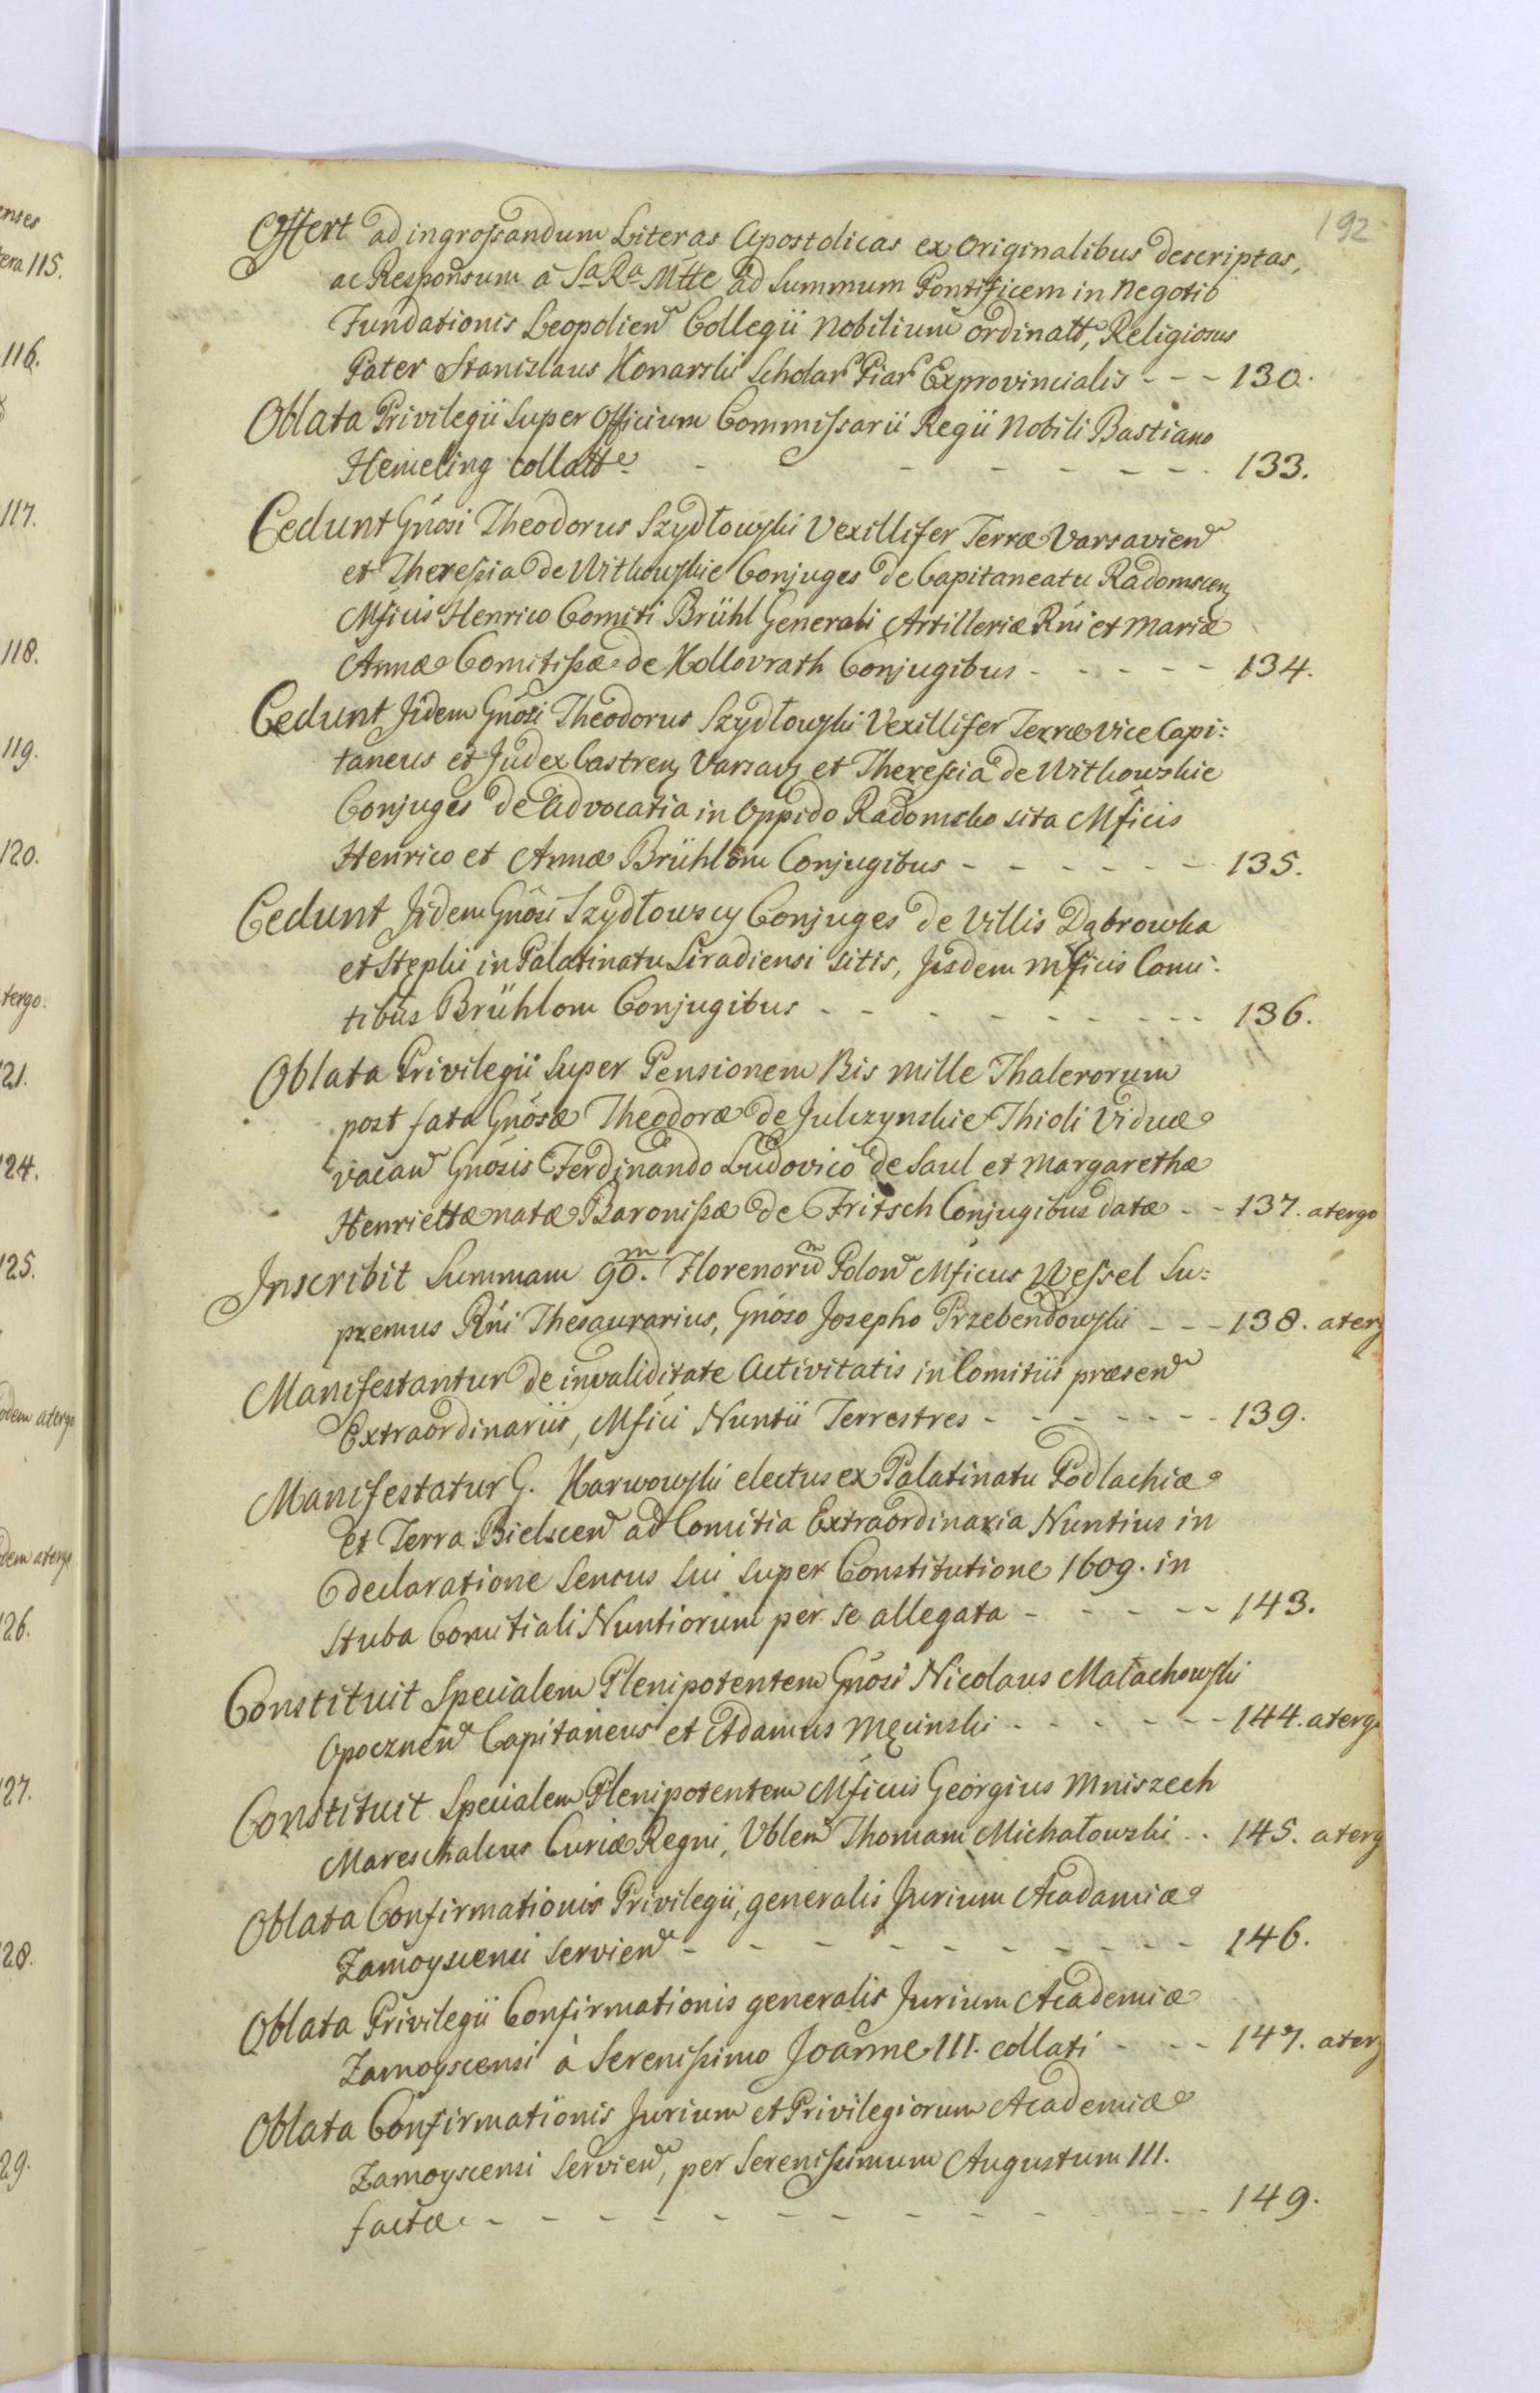 192
Offert ad ingrossandum Literas Apostolicas ex Originalibus descriptas,
ac Responsum a Sa Ra Mtte ad Summum Pontificem in Negotio
Fundationis Leopolien Collegii Nobilium ordinatt, Religiosus
Pater Stanislaus Konarski Scholar Piar Exprovincialis - - - 130.
Oblata Privilegii Super Officium Commissarii Regii Nobili Bastiano
Hemeling collatt - - - - - - - 133.
Cedunt Gnosi Theodorus Szydłowski Vexillifer Terræ Varsavien
et Theressia de Witkowskie Conjuges de Capitaneatu Radomscen
Mficis Henrico Comiti Brühl Generali Artilleriæ Rni et Mariæ
Annæ Comitissæ de Kollovrath Conjugibus - - - - - 134.
Cedunt Jidem Gnosi Theodorus Szydłowski Vexillifer Terræ Vice Capi:
taneus et Judex Castren Varsav et Theressia de Witkowskie
Conjuges de Advocatia in Oppido Radomsko sita Mficis
Henrico et Annæ Brühlom Conjugibus - - - - - - 135.
Cedunt Jidem Gnosi Szydłowscy Conjuges de Villis Dąbrowka
et Stępki in Palatinatu Siradiensi sitis, Jisdem Mficis Comi:
tibus Brühlom Conjugibus - - - - - - - - - 136.
Oblata Privilegii Super Pensionem Bis Mille Thalerorum
post fata Gnosæ Theodoræ de Julczynskie Thioli Viduæ
vacan Gnosis Ferdinando Ludovico de Saul et Margarethæ
Henriettæ natæ Baronissæ de Fritsch Conjugibus datæ - - 137. atergo
Inscribit Summam 90.m Florenorum Polon Mficus Wessel Su:
premus Rni Thesaurarius, Gnoso Josepho Przebendowski - - - 138. aterg
Manifestantur de invaliditate Activitatis in Comitiis præsen
Extraordinariis, Mfici Nuntii Terrestres - - - - - - - 139.
Manifestatur G. Karwowski electus ex Palatinatu Podlachiæ
et Terra Bielscen ad Comitia Extraordinaria Nuntius in
declaratione Sensus Sui Super Constitutione 1609. in
Stuba Comitiali Nuntiorum per se allegata - - - - - 143.
Constituit Specialem Plenipotentem Gnosi Nicolaus Małachowski
Opocznen Capitaneus et Adamus Męcinski - - - - - - - 144. aterg
Constituit Specialem Plenipotentem Mficus Georgius Mniszech
Mareschalcus Curiæ Regni, Vblem Thomam Michałowski - - 145. aterg
Oblata Confirmationis Privilegii, generalis Jurium Acadamiæ
Zamoyscensi servien - - - - - - - - - 146.
Oblata Privilegii Confirmationis generalis Jurium Academiæ
Zamoyscensi à Serenissimo Joanne III. collati - - - - 147. aterg
Oblata Confirmationis Jurium et Privilegiorum Academiæ
Zamoyscensi Servien, per Serenissimum Augustum III.
factæ - - - - - - - - - - - 149.